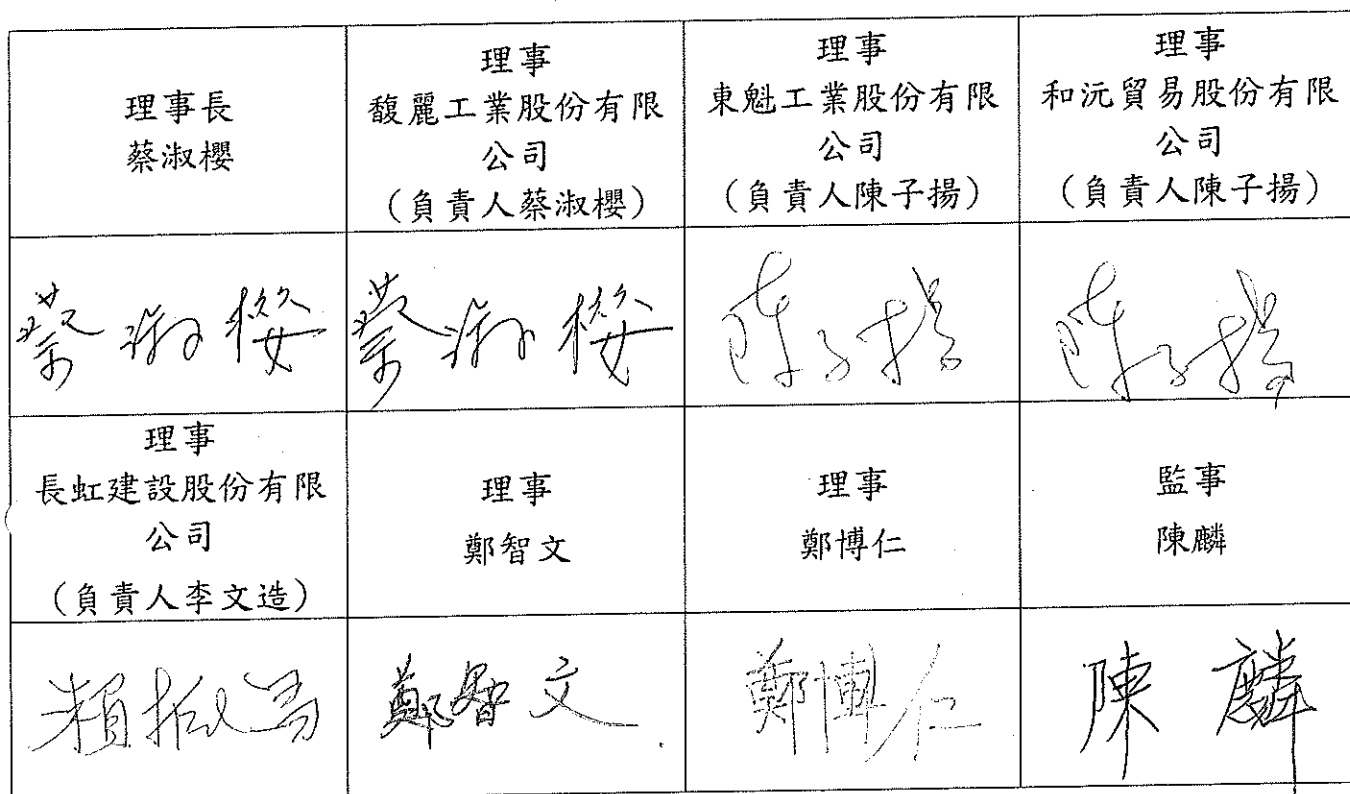 理事長
蔡淑櫻
理事
馥麗工業股份有限
公司
(負責人蔡淑櫻)
理事
東魁工業股份有限
公司
(負責人陳子揚)
理事
和沅貿易股份有限
公司
(負責人陳子揚)
蔡淑櫻
蔡淑櫻
陳子揚
陳子揚
理事
長虹建設股份有限
公司
(負責人李文造)
理事
鄭智文
理事
鄭博仁
監事
陳麟
鄭智文
鄭博仁
陳麟